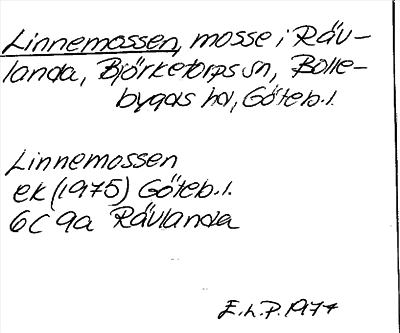 Linnemossen, mosse i Räv-
landa, Björketorps sn, Bolle-
bygds hd, Göteb. l.
Linnemossen
ek (1975) Göteb. l.
6C 9a Rävlanda
E.L.P. 1977